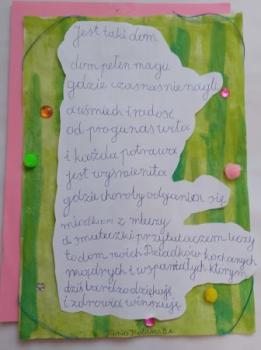 jest taki dom
dom pełen magii
gdzie czas nas nie nagli
a uśmiech i radość
od progu nas wita
i każda potrawa
jest wyśmienita
gdzie choroby odgania się
miodkiem z
a smuteczki przytulaczem leczy
to dom moich Dziadków kochanych
mądrych i wspaniałych którym
dziś bardzo dziękuję
i zdrowia winszuję